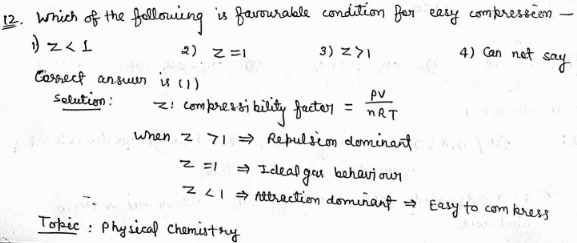 12. Which of the following is favourable condition for easy compression –
1) Z < 1 2) Z = 1 3) Z > 1 4) Can not say
Correct answer is (1)
Solution: Z: compressibility factor = PV/nRT
When Z > 1 ⇒ Repulsion dominant
Z = 1 ⇒ Ideal gas behaviour
Z < 1 ⇒ Attraction dominant ⇒ Easy to compress
Topic : Physical Chemistry